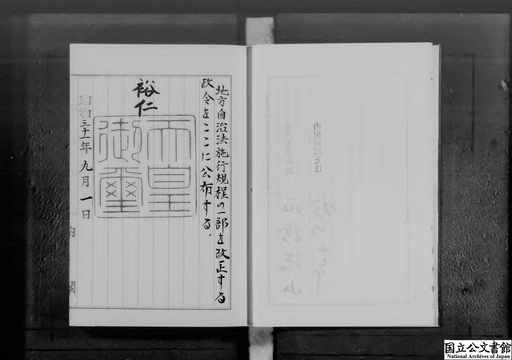 地方自治法施行規程の一部を改正する
政令をここに公布する。
裕仁
天皇
御璽
昭和三十一年九月一日
内閣
国立公文書館
National Archives of Japan